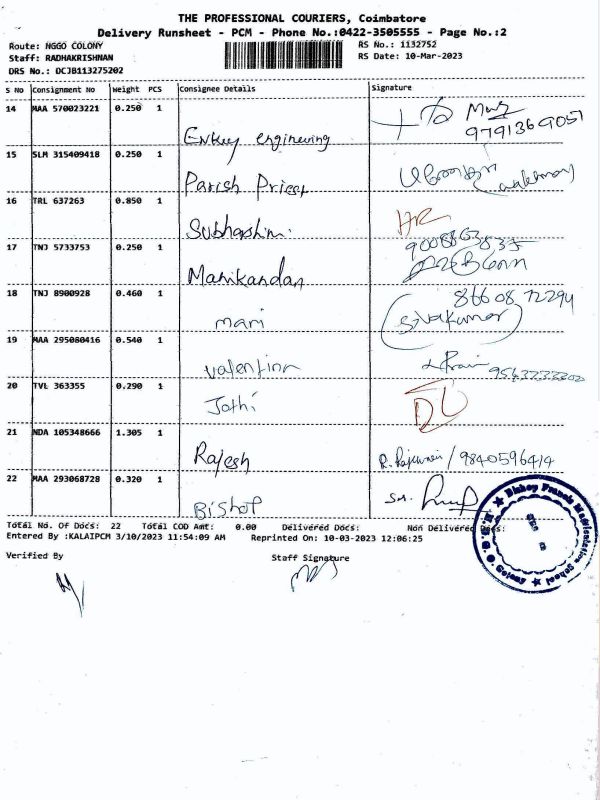 THE PROFESSIONAL COURIERS, Coimbatore
Delivery Runsheet - PCM - Phone No.:0422-3505555 - Page No.:2
Route: NGGO COLONY RS No.: 1132752
Staff: RADHAKRISHNAN RS Date: 10-Mar-2023
DRS No.: DCJB113275202
S No Consignment No Weight PCS Consignee Details Signature
14 MAA 570023221 0.250 1
9791369051
engineering
15 SLM 315409418 0.250 1
Parish Priest
16 TRL 637263 0.850 1
Subhashini HR
17 TNJ 5733753 0.250 1
Manikandan
18 TNJ 8900928 0.460 1 86608 72294
mani Sivakumar
19 MAA 295080416 0.540 1
valentina
20 TVL 363355 0.290 1
Jothi DL
21 NDA 105348666 1.305 1
Rajesh 9840596414
22 MAA 293068728 0.320 1
Bishop
Total No. Of Docs: 22 Total COD Amt: 0.00 Delivered Docs: Non Delivered Docs:
Entered By :KALAIPCM 3/10/2023 11:54:09 AM Reprinted On: 10-03-2023 12:06:25
Verified By Staff Signature